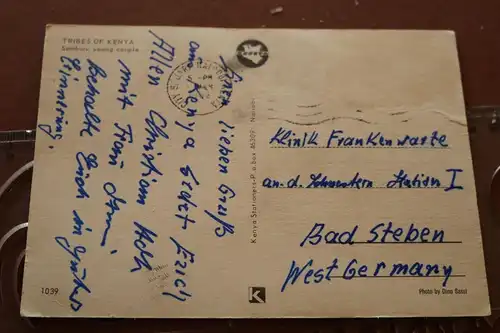 TRIBES OF KENYA
Samburu young couple
lieben Gruß
aus Kenya
Erich
Allen Christian Koch
mit Frau
behalte Euch in guter
Erinnerung.
Kenya Stationers-P.o.box
Klinik Frankenwarte
an. d. Schwestern Station I
Bad Steben
West Germany
1039
K
Photo by Dino Sassi